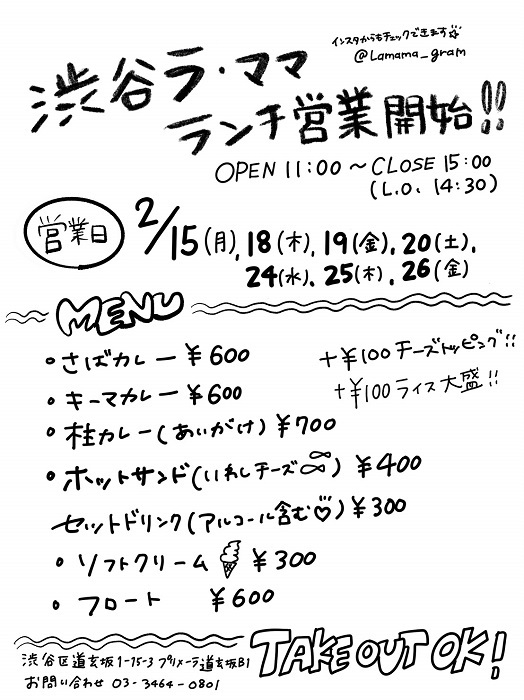 インスタからもチェックできます☆
@Lamama_gram
渋谷ラ・ママ
ランチ営業開始!!
OPEN 11:00 〜 CLOSE 15:00
(L.O. 14:30)
営業日
2/15(月), 18(木), 19(金), 20(土),
24(水), 25(木), 26(金)
MENU
・さばカレー ¥600
+¥100 チーズトッピング!!
・キーマカレー ¥600
+¥100 ライス大盛!!
・桂カレー(あいがけ) ¥700
・ホットサンド(いわしチーズ) ¥400
セットドリンク(アルコール含む♡) ¥300
・ソフトクリーム ¥300
・フロート ¥600
TAKE OUT OK!
渋谷区道玄坂1-15-3 プリメーラ道玄坂B1
お問い合わせ 03-3464-0801